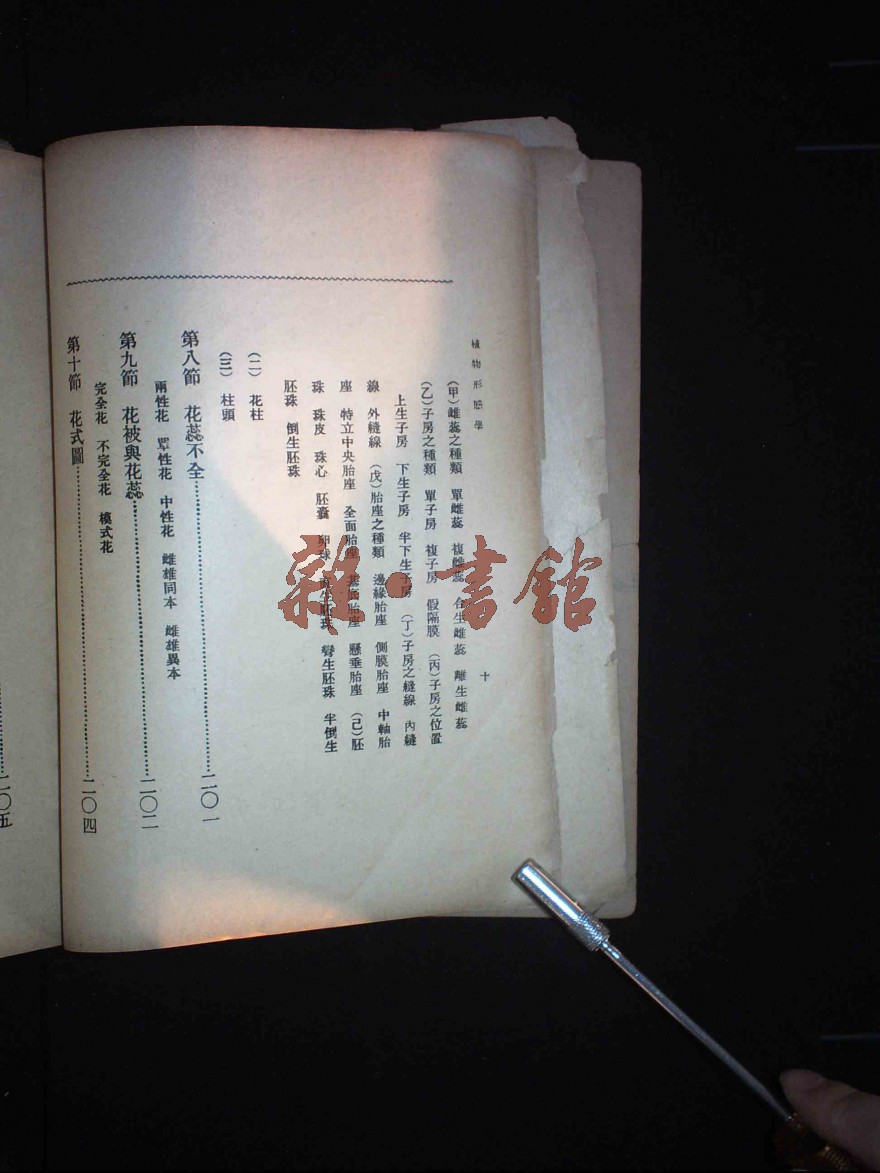 植物形態學
十
(甲)雌蕊之種類 單雌蕊 複雌蕊 合生雌蕊 離生雌蕊
(乙)子房之種類 單子房 複子房 假隔膜 (丙)子房之位置
上生子房 下生子房 半下生子房 (丁)子房之縫線 內縫
線 外縫線 (戊)胎座之種類 邊緣胎座 側膜胎座 中軸胎
座 特立中央胎座 全面胎座 胎座 懸垂胎座 (己)胚
珠 珠皮 珠心 胚囊 卵球 胚珠 彎生胚珠 半倒生
胚珠 倒生胚珠
(二) 花柱
(三) 柱頭
第八節 花蕊不全……二〇一
兩性花 單性花 中性花 雌雄同本 雌雄異本
第九節 花被與花蕊……二〇二
完全花 不完全花 模式花
第十節 花式圖……二〇四
二〇五
雜·書館